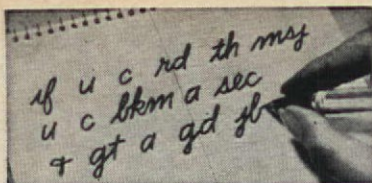 if u c rd th msj
u c bkm a sec
& gt a gd jb